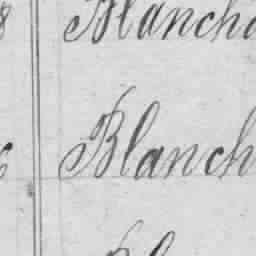 8 Blancha
Blanch